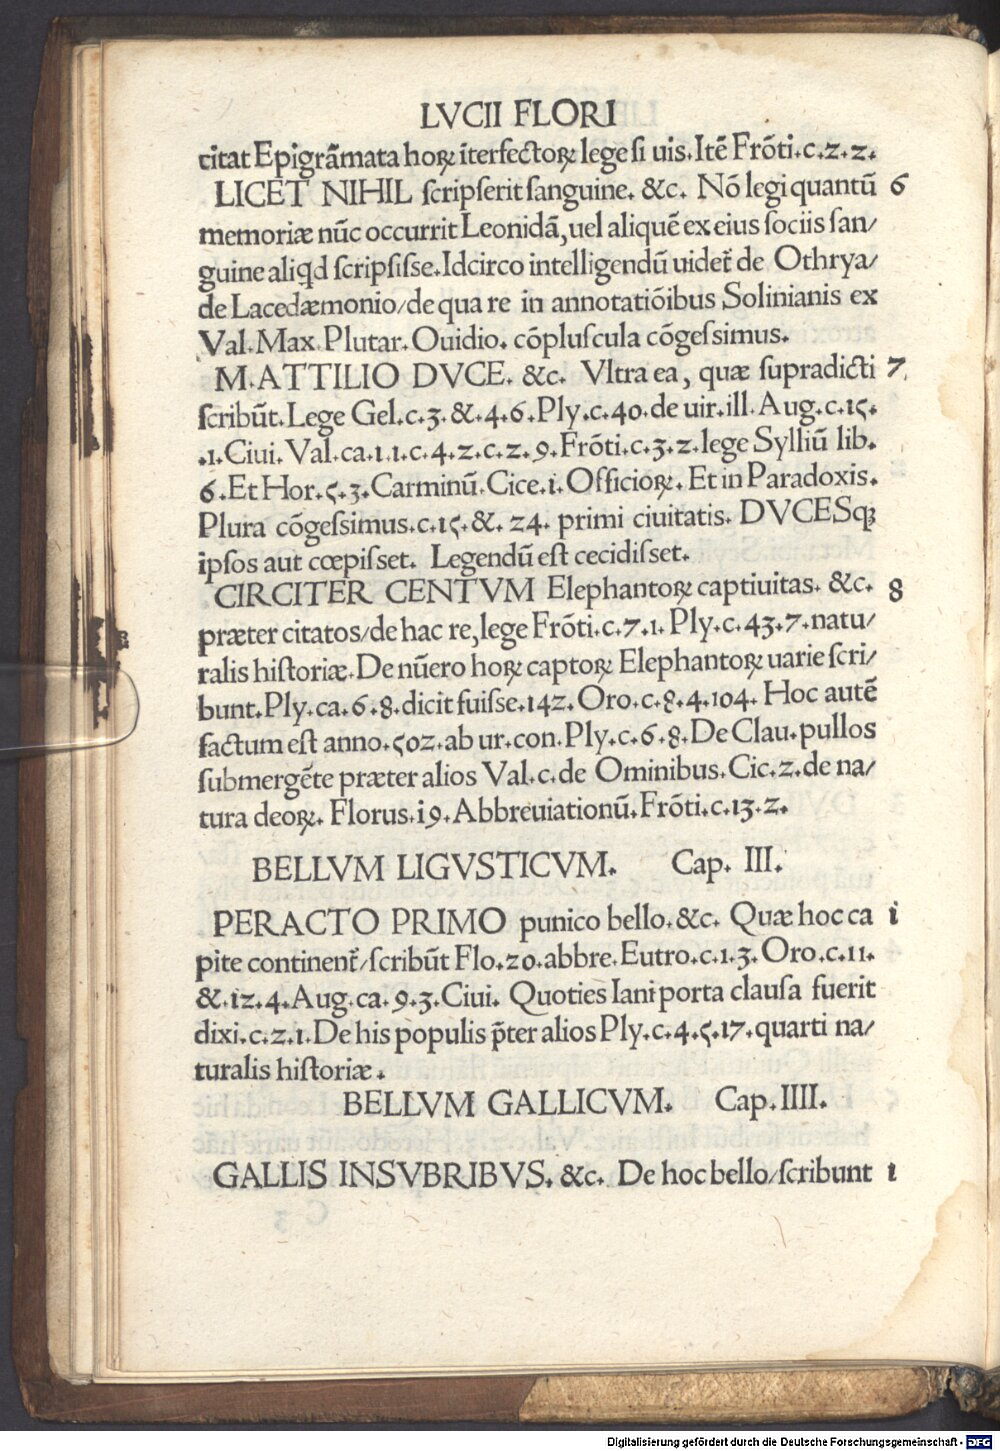 LVCII FLORI
titat Epigrãmata hoꝝ ĩterfectoꝝ lege si uis. Itẽ Frõti.c.2.2.
LICET NIHIL scripserit sanguine. &c. Nõ legi quantũ 6
memoriæ nũc occurrit Leonidã, uel aliquẽ ex eius sociis san/
guine aliqd scripsisse. Idcirco intelligendũ uidet̃ de Othrya/
de Lacedæmonio/de qua re in annotatiõibus Solinianis ex
Val. Max. Plutar. Ouidio. cõpluscula cõgessimus.
M. ATTILIO DVCE. &c. Vltra ea, quæ supradicti 7
scribũt. Lege Gel.c.3.&.4.6. Ply.c.40. de uir. ill. Aug.c.15.
.1. Ciui. Val. ca.1.1.c.4.2.c.2.9. Frõti.c.3.2. lege Sylliũ lib.
6. Et Hor.5.3. Carminũ. Cice.i. Officioꝝ. Et in Paradoxis.
Plura cõgessimus.c.15.&.24. primi ciuitatis. DVCESqꝫ
ipsos aut cœpisset. Legendũ est cecidisset.
CIRCITER CENTVM Elephantoꝝ captiuitas. &c. 8
præter citatos/de hac re, lege Frõti.c.7.1. Ply.c.43.7. natu/
ralis historiæ. De nũero hoꝝ captoꝝ Elephantoꝝ uarie scri/
bunt. Ply. ca.6.8. dicit fuisse.142. Oro.c.8.4.104. Hoc autẽ
factum est anno.502. ab ur. con. Ply.c.6.8. De Clau. pullos
submergẽte præter alios Val.c. de Ominibus. Cic.2. de na/
tura deoꝝ. Florus.i9. Abbreuiationũ. Frõti.c.13.2.
BELLVM LIGVSTICVM. Cap. III.
PERACTO PRIMO punico bello. &c. Quæ hoc ca i
pite continent̃/scribũt Flo.20. abbre. Eutro.c.1.3. Oro.c.11.
&.12.4. Aug. ca.9.3. Ciui. Quoties Iani porta clausa fuerit
dixi.c.2.1. De his populis p̃ter alios Ply.c.4.5.17. quarti na/
turalis historiæ.
BELLVM GALLICVM. Cap. IIII.
GALLIS INSVBRIBVS. &c. De hoc bello/scribunt 1
Digitalisierung gefördert durch die Deutsche Forschungsgemeinschaft - DFG